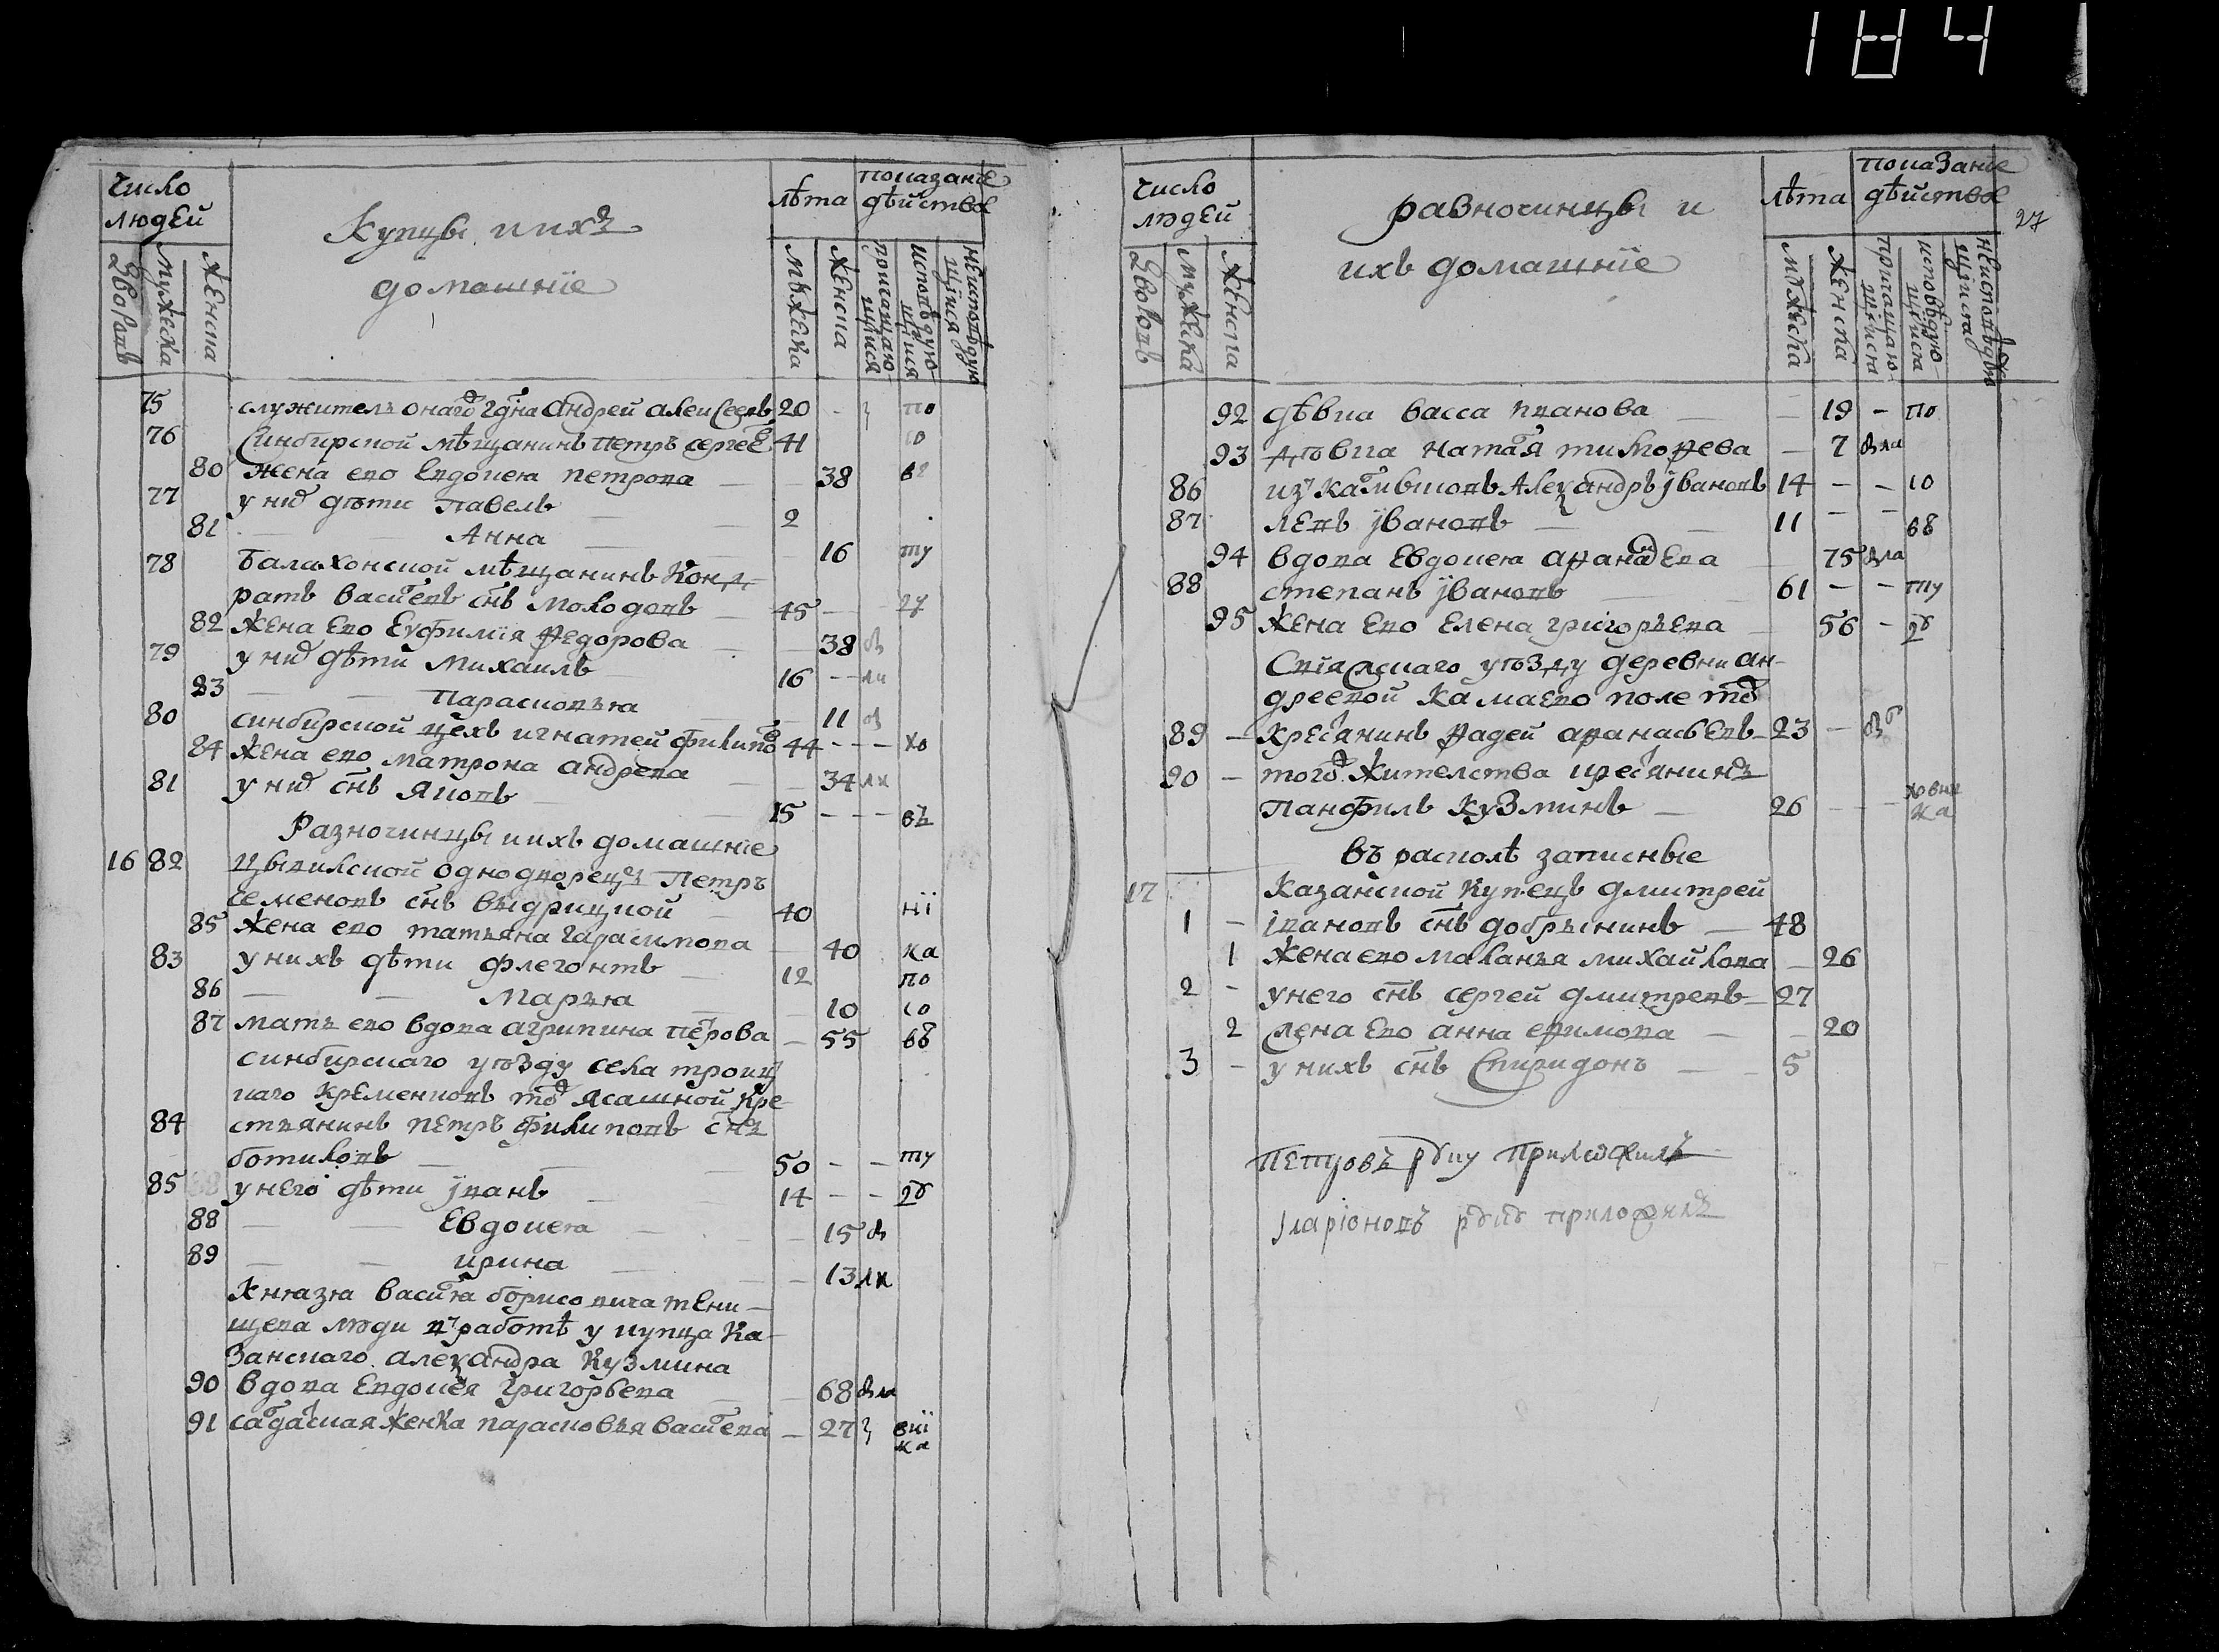 184
число людей
Купцы и ихъ
домашнїе
лѣта
показанїе дѣйства
дворовъ
мужеска
женска
мужеска
женска
причащаю-щїися
исповѣдую-щїися
неисповѣдую щїися
75 служитель онаго гдна Андрей алексеевъ 20 - по
76 Синбирской мѣщанинъ петръ сергеѣ 41 ю
80 жена ево Евдокея петрова 38
77 у нихъ дѣти Павелъ 2
81 Анна 16 ту
78 балахонской мѣщанинъ Конд-
ратъ василевъ снъ молодовъ 45
82 жена Ево Еуфимїя федорова 38
79 у нихъ дѣти михаилъ 16
83 парасковья 11
80 синбирской цехъ игнатей филипо 44 - - хо
84 жена ево матрона андрева 34
81 у нихъ снъ яковъ 15 - - въ
Разночинцы и ихъ домашнїе
16 82 цывилской однодворецъ Петръ
семеновъ снъ выдрицкой 40 нї
85 жена ево татьяна гарасимова 40 ка
83 у нихъ дѣти флегонтъ 12 по
86 Марья 10 ю
87 мать ево вдова агрипина петрова 55 въ
синбирскаго уѣзду села троиц
каго Кременковъ тоѣ ясашной кре-
84 стьянинъ петръ филиповъ снъ
ботиловъ 50 - - ту
85 у него дѣти иванъ 14 - -
88 Евдокея 15
89 ирина 13
Князя василья борисовича тени-
щева люди въ работѣ у купца Ка-
занскаго александра кузмина
90 вдова Евдокѣя григорьева 68
91 салдатская женка парасковья василева 27 ка
27
число людей
разночинцы и
ихъ домашнїе
лѣта
показанїе дѣйства
дворовъ
мужеска
женска
мужеска
женска
причащаю-щїися
исповѣдую-щїися
неисповѣдую щїися
92 дѣвка васса иванова 19 - по
93 дѣвка наталя тимофева 7
86 Алеѯандръ ївановъ 14 - - ю
87 левъ ївановъ 11 - - въ
94 вдова Евдокея афанасева 75
88 степанъ ївановъ 61 - - ту
95 жена Ево елена григорьева 56 -
Свїяжскаго уѣзду деревни ан-
дреевой камаево поле тоѣ
89 - кресянинъ фадей афанасьевъ 23 -
90 - того жителства кресянинъ
панфилъ Кузминъ 26 - - ка
въ расколѣ записные
17 казанской купецъ дмитрей
1 - івановъ снъ добрынинъ 48
1 жена ево маланья михайлова 26
2 - у него снъ сергей дмитревъ 27
2 жена Ево анна ефимова 20
3 - у нихъ снъ Спиридонъ 5
Петровъ руку приложилъ
Іларіоновъ руку приложилъ